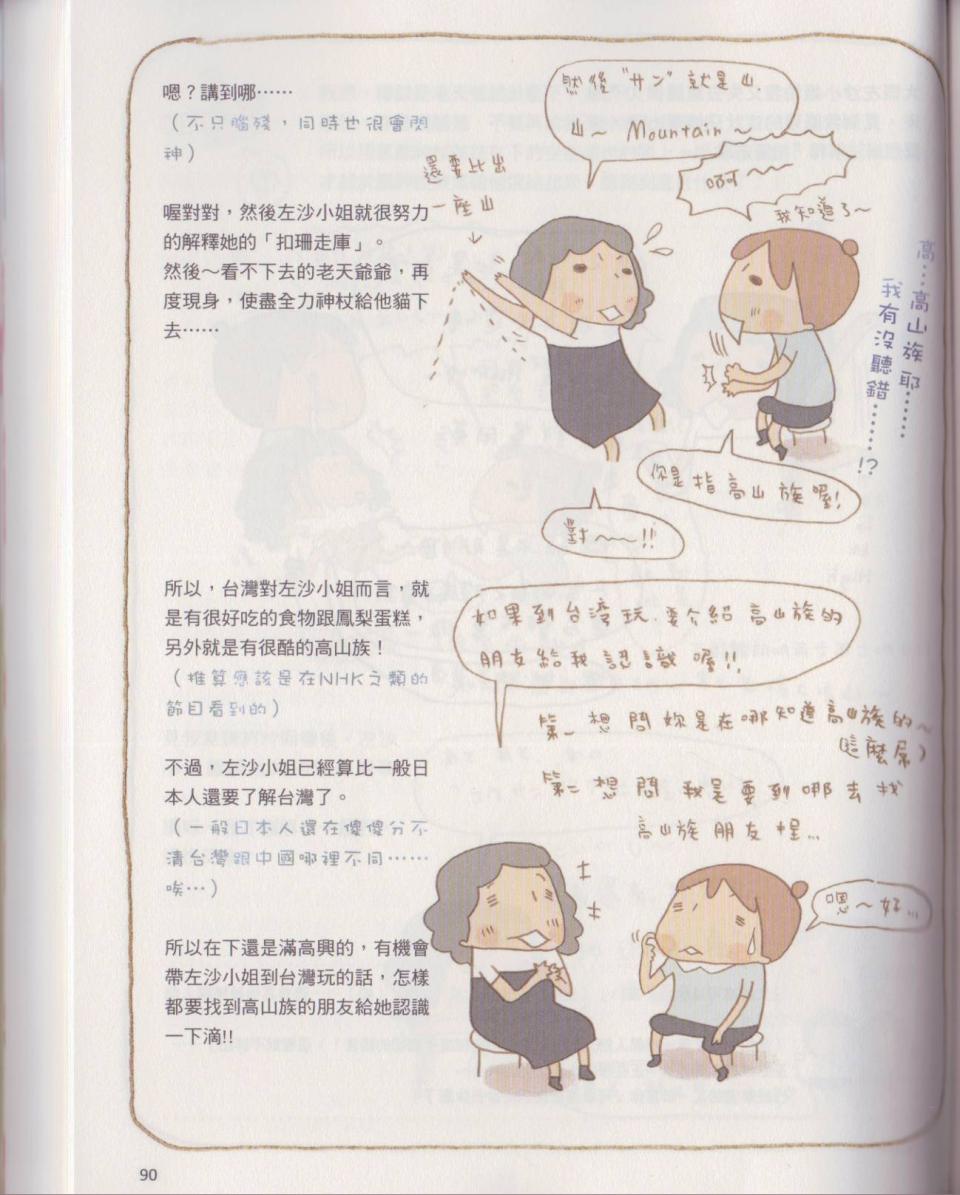 嗯？講到哪⋯⋯
（不只腦殘，同時也很會閃
神）
喔對對，然後左沙小姐就很努力
的解釋她的「扣珊走庫」。
然後～看不下去的老天爺爺，再
度現身，使盡全力神杖給他貓下
去⋯⋯
然後"サン"就是山
山～ Mountain～
啊～～
我知道了～
還要比出
一座山
高⋯高山族耶⋯⋯⋯
我有沒聽錯⋯⋯⋯!?
你是指高山族喔!
對～～!!
所以，台灣對左沙小姐而言，就
是有很好吃的食物跟鳳梨蛋糕，
另外就是有很酷的高山族！
（推算應該是在NHK之類的
節目看到的）
不過，左沙小姐已經算比一般日
本人還要了解台灣了。
（一般日本人還在傻傻分不
清台灣跟中國哪裡不同⋯⋯
唉⋯）
所以在下還是滿高興的，有機會
帶左沙小姐到台灣玩的話，怎樣
都要找到高山族的朋友給她認識
一下滴!!
如果到台灣玩.要介紹高山族的
朋友給我認識喔!!
第一想問妳是在哪知道高山族的～
（這麼屌）
第二想問我是要到哪去找
高山族朋友捏...
嗯～好...
90